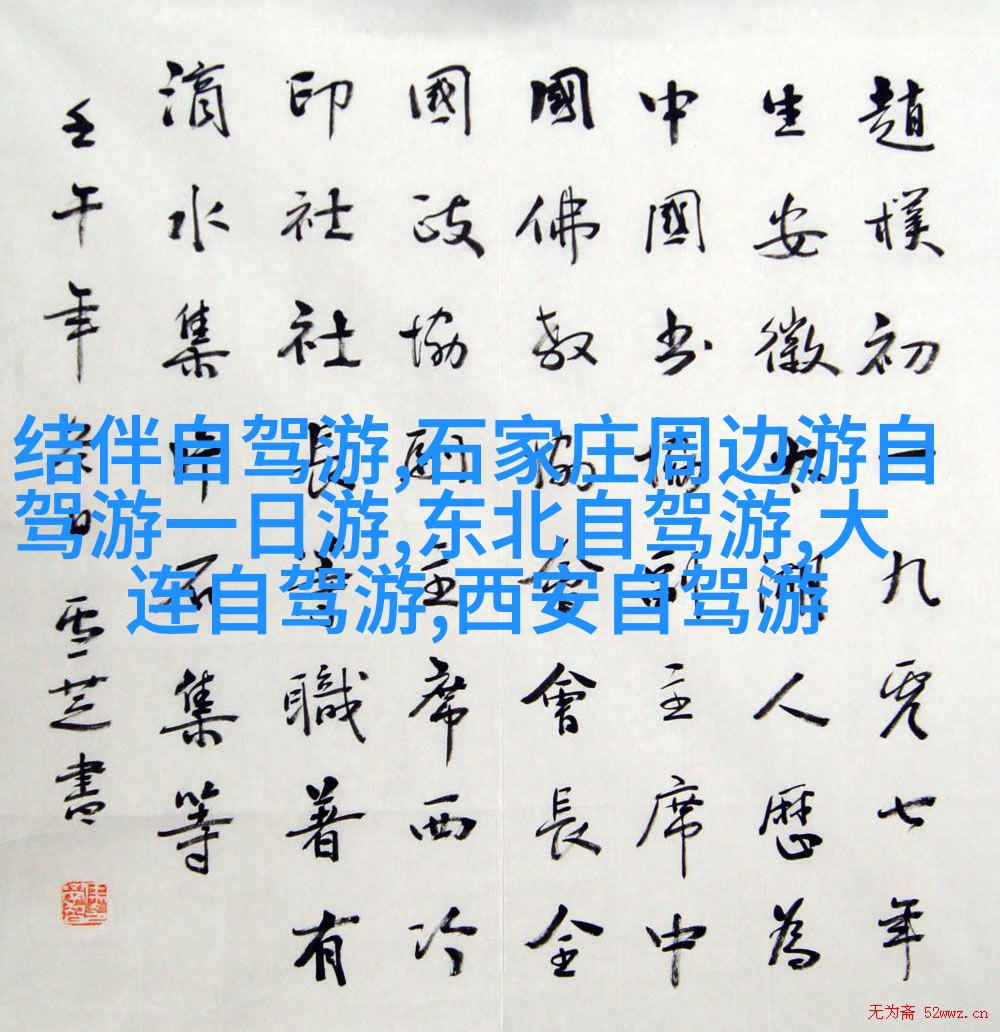 趙樸初一九零七年
生安徽太湖人歷為
中國书協副主席中
國佛教協會會長全
國政協副主席西冷
印社社長等職著有
滴水集片石集等
壬午年春日雪芝書
结伴自驾游,石家庄周边游自
驾游一日游,东北自驾游,大
连自驾游,西安自驾游
无为斋 52wwz.cn